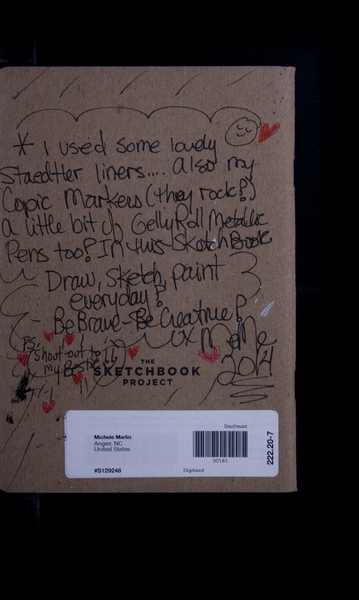 * I used some lovely
Staedtler liners.... also my
Copic Markers (they rock!)
a little bit of GellyRoll Metallic
Pens too! In this Sketchbook
Draw, Sketch, paint
everyday!
- Be Brave - Be Creative!
PS: xx MeMe
shout out to 2014
my Besties!!
!!
THE
SKETCHBOOK
PROJECT
Southeast
Michele Martin
Angier, NC
United States
30585
#S129248 Digitized
222.20-7